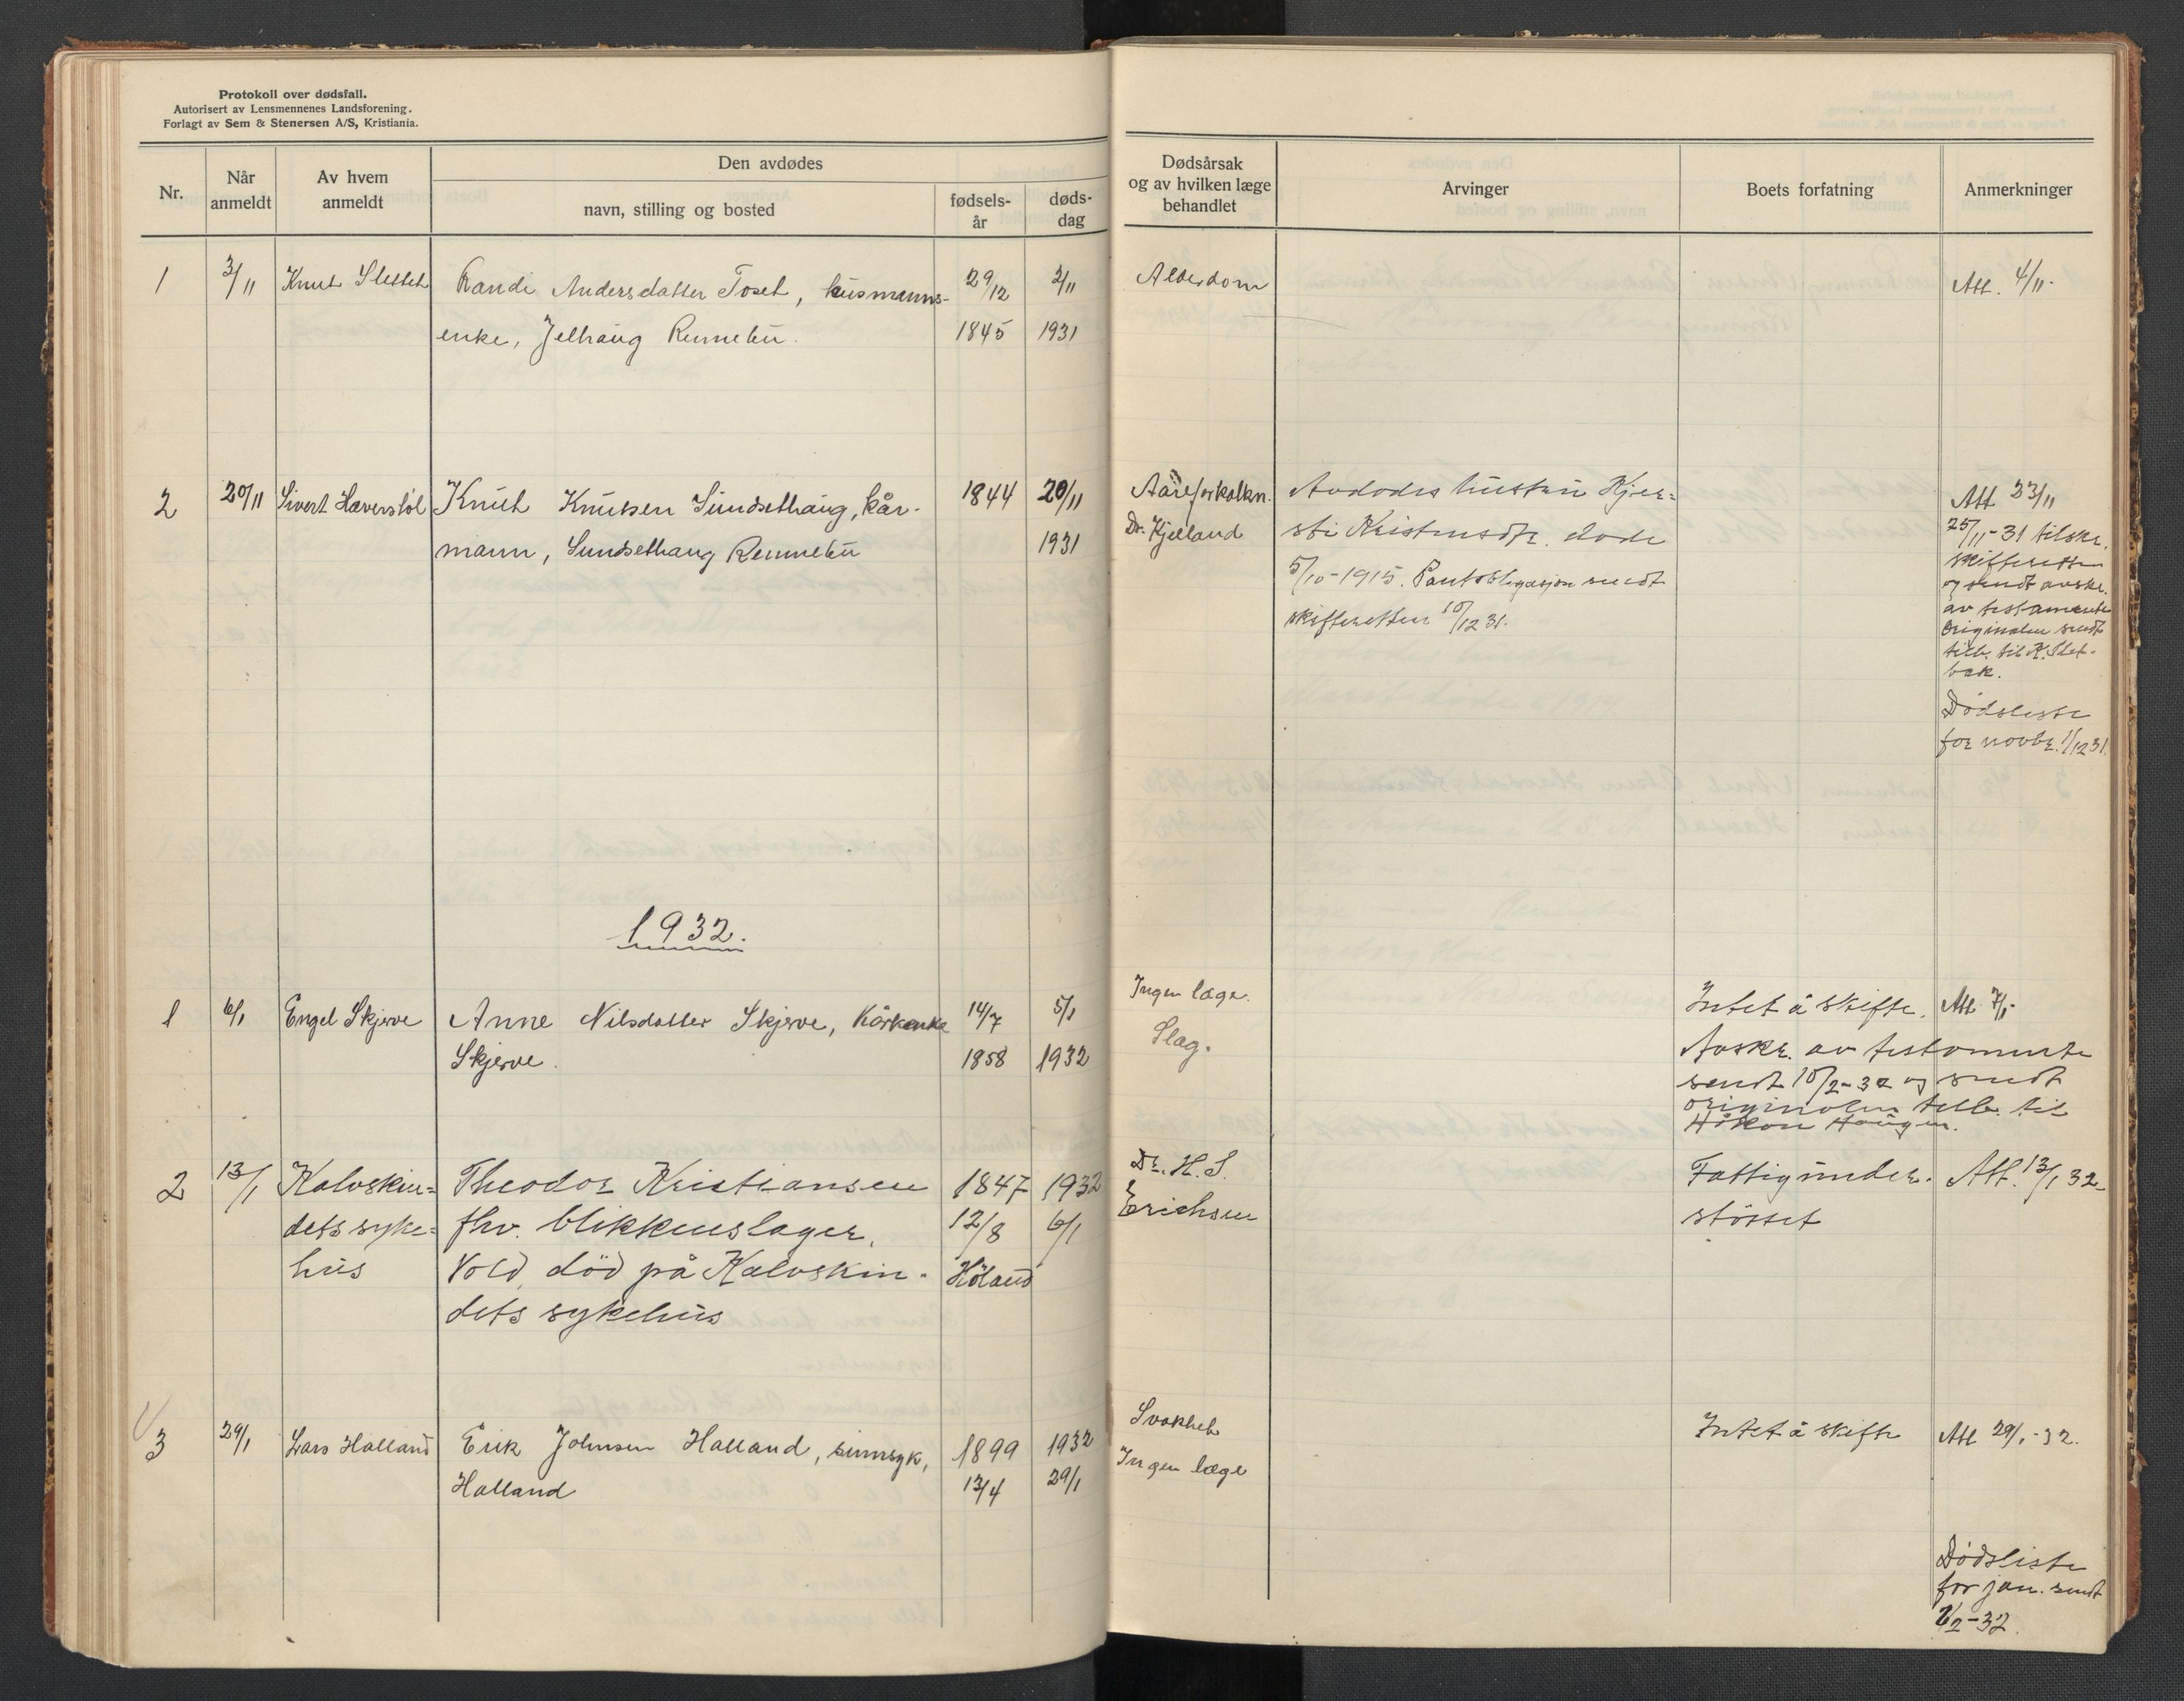 Protokoll over dødsfall.
Autorisert av Lensmennenes Landsforening.
Forlagt av Sem & Stenersen A/S, Kristiania.
Nr.
Når
anmeldt
Av hvem
anmeldt
Den avdødes
navn, stilling og bosted
fødsels-
år
døds-
dag
Dødsårsak
og av hvilken læge
behandlet
Arvinger
Boets forfatning
Anmerkninger
1 3/11 Knut Slettet Randi Andersdatter Toset, husmanns- 29/12 2/11 Alderdom Att. 4/11.
enke, Jelhaug Rennebu. 1845 1931
2 20/11 Sivert Haverstøl Knut Knutsen Sundsethaug, kår- 1844 20/11 Aareforkalkn. Avdødes hustru Kjer= Att 23/11
mann, Sundsethaug Rennebu 1931 Dr. Kjelland sti Kristensdtr. døde 25/11-31 tilskr.
5/10-1915. Pantobligasjon sendt skifteretten
skifteretten 10/12 31. og sendt avskr.
av testamente
Originalen sendt
tilb. til K. Slet-
bak.
Dødsliste
for novbr. 1/12 31.
1932.
1 6/1 Engel Skjerve Anne Nilsdatter Skjerve, Kårenke 14/7 5/1 Ingen læge. Intet å skifte. Att 7/1.
Skjerve. 1858 1932 Slag. Avskr. av testamente
sendt 10/2-32 og sendt
originalen tilb. til
Håkon Haugen.
2 13/1 Kalvskin= Theodor Kristiansen 1847 1932 Dr. H. S. Fattigunder- Att. 13/1 32.
dets syke= fhv. blikkenslager, 12/8 6/1 Erichsen støttet
hus Vold, død på Kalvskin- Høland
dets sykehus
3 29/1 Lars Halland Erik Johnsen Halland, sinnsyk, 1899 1932 Svakhet Intet å skifte Att 29/1-32.
Halland 13/4 29/1 Ingen læge
Dødsliste
for jan. sendt
1/2-32.